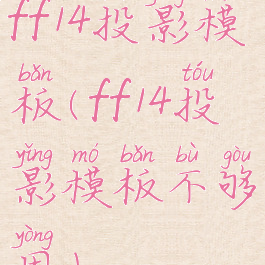 ff14投影模
bǎn tóu
板(ff14投
yǐng mó bǎn bù gòu
影模板不够
yòng
用)